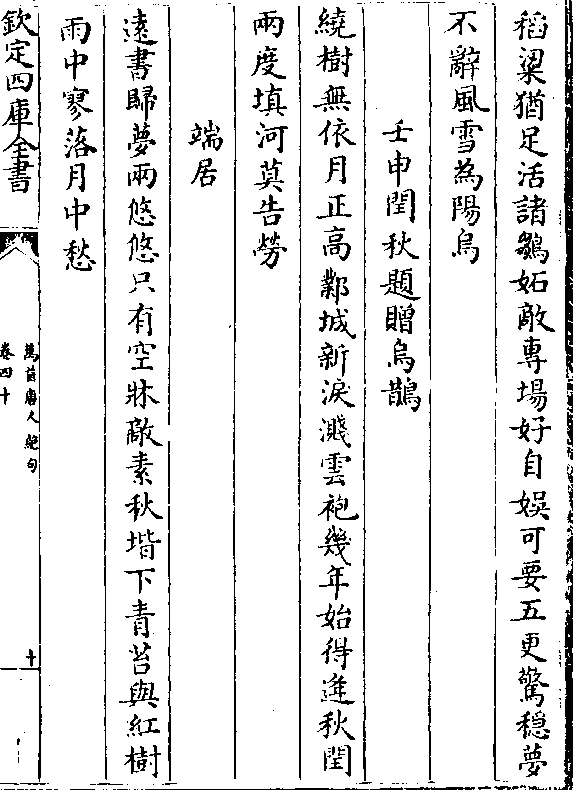 稻粱猶足活諸雛妬敵専場好自娯可要五更驚穏夢
不辭風雪為陽烏
壬申閏秋題贈烏鵲
繞樹無依月正高鄴城新淚濺雲袍幾年始得逢秋閏
兩度填河莫告勞
端居
逺書歸夢兩悠悠只有空牀敵素秋堦下青苔與紅樹
雨中寥落月中愁
欽定四庫全書
萬首唐人絶句
卷四十
十